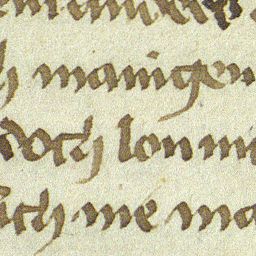 h manigen
doch lon mi
uch me ma